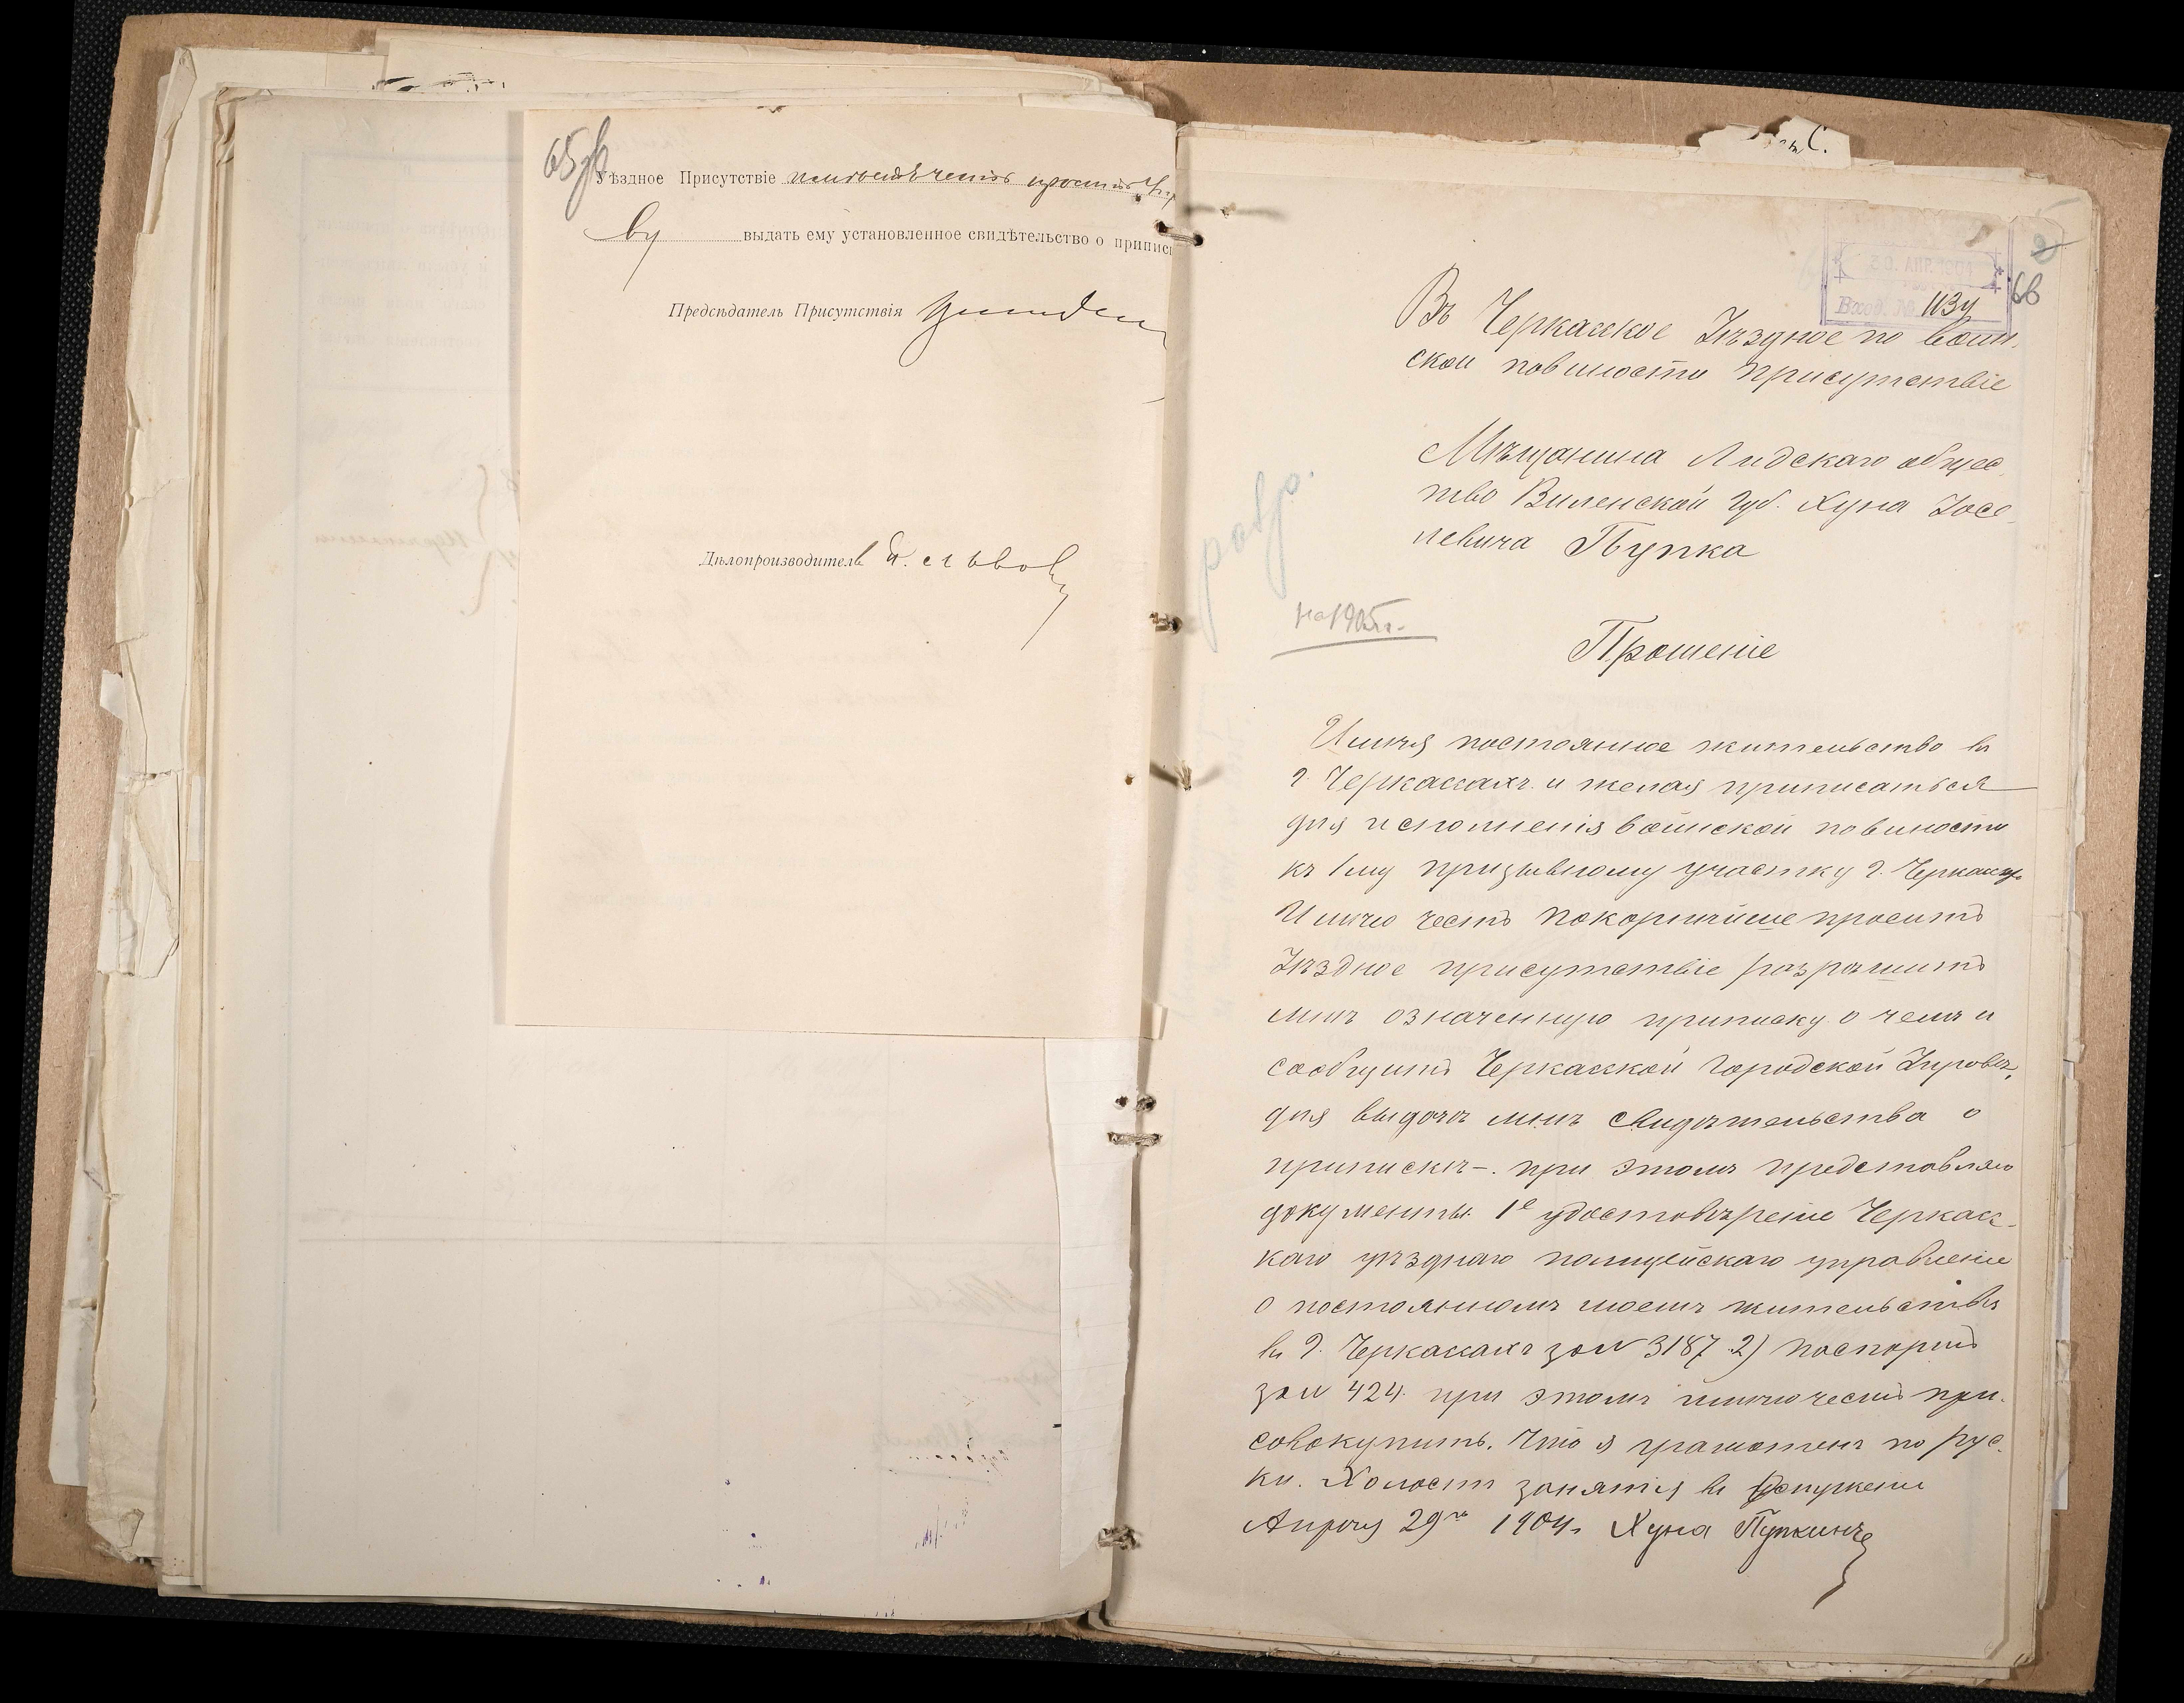 65об
Уѣздное Присутствіе просить
ву выдать ему установленное свидѣтельство о припис
Предсѣдатель Присутствія
Дѣлопроизводитель
С.
30. АПР. 1904
Вход. № 1134
66
Въ Черкасское Уѣздное по воин
ской повиности присутствіе
Мѣщанина Лидскаго общес
тво Виленской губ. Хуна Іосе
левича Пупка
на 1905 г.
Прошеніе
Имѣя постоянное жительство въ
г. Черкассахъ и желая приписаться
для исполненія воинской повиности
къ 1му призывному участку г. Черкассъ
Имѣю честь покорнѣйше просить
Уѣздное присутствіе разрѣшить
мнѣ означенную приписку о чемъ и
сообщить Черкасской городской Управѣ,
для выдачѣ мнѣ свидѣтельства о
припискѣ-. при этомъ представляю
документы. 1е удостовѣреніе Черкасс-
каго уѣзднаго полицейскаго управленіе
о постоянномъ моемъ жительствѣ
въ г. Черкассахъ за № 3187. 2) паспортъ
за № 424. при этомъ имѣю честь при-
совокупить. что я грамотенъ по рус-
ки. Холостъ занятія въ
Апрѣля 29го 1904 г. Хуна Пупкинъ